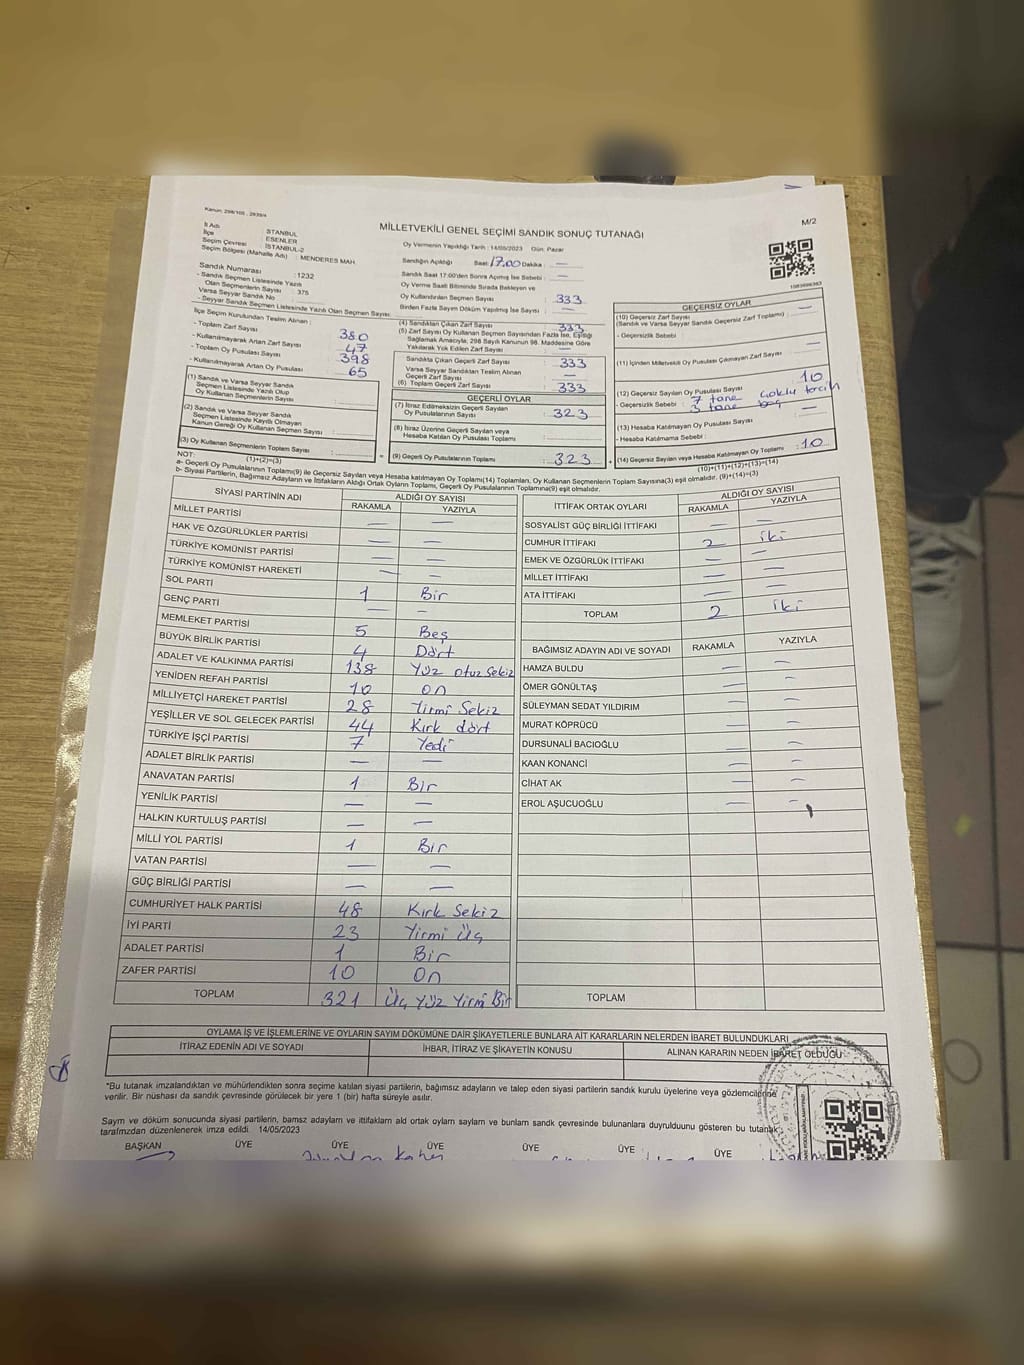 Kanun: 298/105 , 2839/4
M/2
MİLLETVEKİLİ GENEL SEÇİMİ SANDIK SONUÇ TUTANAĞI
İl Adı : İSTANBUL
İlçe : ESENLER
Seçim Çevresi : İSTANBUL-2
Seçim Bölgesi (Mahalle Adı) : MENDERES MAH.
Oy Vermenin Yapıldığı Tarih : 14/05/2023 Gün: Pazar
Sandığın Açıldığı Saat: 17.00 Dakika : —
Sandık Saat 17:00'den Sonra Açılmış İse Sebebi : —
Oy Verme Saati Bitiminde Sırada Bekleyen ve
Oy Kullandırılan Seçmen Sayısı : 333
Birden Fazla Seyim Döküm Yapılmış İse Sayısı : —
Sandık Numarası : 1232
- Sandık Seçmen Listesinde Yazılı
Olan Seçmenlerin Sayısı : 375
Varsa Seyyar Sandık No
- Seyyar Sandık Seçmen Listesinde Yazılı Olan Seçmen Sayısı:
İlçe Seçim Kurulundan Teslim Alınan :
- Toplam Zarf Sayısı 380
- Kullanılmayarak Artan Zarf Sayısı 47
- Toplam Oy Pusulası Sayısı 398
- Kullanılmayarak Artan Oy Pusulası 65
(1) Sandık ve Varsa Seyyar Sandık
Seçmen Listesinde Yazılı Olup
Oy Kullanan Seçmenlerin Sayısı :
(2) Sandık ve Varsa Seyyar Sandık
Seçmen Listesinde Kayıtlı Olmayan
Kanun Gereği Oy Kullanan Seçmen Sayısı :
(3) Oy Kullanan Seçmenlerin Toplam Sayısı :
(1)+(2)=(3)
(4) Sandıktan Çıkan Zarf Sayısı : 333
(5) Zarf Sayısı Oy Kullanan Seçmen Sayısından Fazla İse, Eşitliği
Sağlamak Amacıyla, 298 Sayılı Kanunun 98. Maddesine Göre
Yakılarak Yok Edilen Zarf Sayısı : —
Sandıkta Çıkan Geçerli Zarf Sayısı : 333
Varsa Seyyar Sandıktan Teslim Alınan
Geçerli Zarf Sayısı : —
(6) Toplam Geçerli Zarf Sayısı : 333
GEÇERLİ OYLAR
(7) İtiraz Edilmeksizin Geçerli Sayılan
Oy Pusulalarının Sayısı : 323
(8) İtiraz Üzerine Geçerli Sayılan veya
Hesaba Katılan Oy Pusulası Toplamı :
(9) Geçerli Oy Pusulalarının Toplamı : 323
GEÇERSİZ OYLAR
(10) Geçersiz Zarf Sayısı : —
(Sandık ve Varsa Seyyar Sandık Geçersiz Zarf Toplamı) :
- Geçersizlik Sebebi :
(11) İçinden Milletvekili Oy Pusulası Çıkmayan Zarf Sayısı : —
(12) Geçersiz Sayılan Oy Pusulası Sayısı : 10
- Geçersizlik Sebebi : 7 tane çoklu tercih
3 tane boş
(13) Hesaba Katılmayan Oy Pusulası Sayısı : —
- Hesaba Katılmama Sebebi :
(14) Geçersiz Sayılan veya Hesaba Katılmayan Oy Toplamı : 10
(10)+(11)+(12)+(13)=(14)
NOT:
a- Geçerli Oy Pusulalarının Toplamı(9) ile Geçersiz Sayılan veya Hesaba katılmayan Oy Toplamı(14) Toplamları, Oy Kullanan Seçmenlerin Toplam Sayısına(3) eşit olmalıdır. (9)+(14)=(3)
b- Siyasi Partilerin, Bağımsız Adayların ve İttifakların Aldığı Ortak Oyların Toplamı, Geçerli Oy Pusulalarının Toplamına(9) eşit olmalıdır.
SİYASİ PARTİNİN ADI ALDIĞI OY SAYISI
RAKAMLA YAZIYLA
MİLLET PARTİSİ — —
HAK VE ÖZGÜRLÜKLER PARTİSİ — —
TÜRKİYE KOMÜNİST PARTİSİ — —
TÜRKİYE KOMÜNİST HAREKETİ — —
SOL PARTİ 1 Bir
GENÇ PARTİ — —
MEMLEKET PARTİSİ 5 Beş
BÜYÜK BİRLİK PARTİSİ 4 Dört
ADALET VE KALKINMA PARTİSİ 138 Yüz otuz Sekiz
YENİDEN REFAH PARTİSİ 10 on
MİLLİYETÇİ HAREKET PARTİSİ 28 Yirmi Sekiz
YEŞİLLER VE SOL GELECEK PARTİSİ 44 Kırk dört
TÜRKİYE İŞÇİ PARTİSİ 7 Yedi
ADALET BİRLİK PARTİSİ — —
ANAVATAN PARTİSİ 1 Bir
YENİLİK PARTİSİ — —
HALKIN KURTULUŞ PARTİSİ — —
MİLLİ YOL PARTİSİ 1 Bir
VATAN PARTİSİ — —
GÜÇ BİRLİĞİ PARTİSİ — —
CUMHURİYET HALK PARTİSİ 48 Kırk Sekiz
İYİ PARTİ 23 Yirmi Üç
ADALET PARTİSİ 1 Bir
ZAFER PARTİSİ 10 On
TOPLAM 321 Üç Yüz Yirmi Bir
İTTİFAK ORTAK OYLARI ALDIĞI OY SAYISI
RAKAMLA YAZIYLA
SOSYALİST GÜÇ BİRLİĞİ İTTİFAKI — —
CUMHUR İTTİFAKI 2 iki
EMEK VE ÖZGÜRLÜK İTTİFAKI — —
MİLLET İTTİFAKI — —
ATA İTTİFAKI — —
TOPLAM 2 iki
BAĞIMSIZ ADAYIN ADI VE SOYADI RAKAMLA YAZIYLA
HAMZA BULDU — —
ÖMER GÖNÜLTAŞ — —
SÜLEYMAN SEDAT YILDIRIM —
MURAT KÖPRÜCÜ — —
DURSUNALİ BACIOĞLU — —
KAAN KONANCİ — —
CİHAT AK — —
EROL AŞUCUOĞLU — —
TOPLAM
OYLAMA İŞ VE İŞLEMLERİNE VE OYLARIN SAYIM DÖKÜMÜNE DAİR ŞİKAYETLERLE BUNLARA AİT KARARLARIN NELERDEN İBARET BULUNDUKLARI
İTİRAZ EDENİN ADI VE SOYADI İHBAR, İTİRAZ VE ŞİKAYETİN KONUSU ALINAN KARARIN NEDEN İBARET OLDUĞU
*Bu tutanak imzalandıktan ve mühürlendikten sonra seçime katılan siyasi partilerin, bağımsız adayların ve talep eden siyasi partilerin sandık kurulu üyelerine veya gözlemcilerine
verilir. Bir nüshası da sandık çevresinde görülecek bir yere 1 (bir) hafta süreyle asılır.
Sayım ve döküm sonucunda siyasi partilerin, bamsz adaylarn ve ittifaklarn ald ortak oylarn saylarn ve bunlarn sandk çevresinde bulunanlara duyrulduunu gösteren bu tutanak
tarafmzdan düzenlenerek imza edildi. 14/05/2023
BAŞKAN ÜYE ÜYE ÜYE ÜYE ÜYE ÜYE